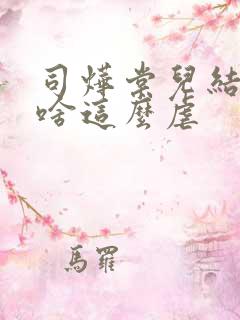 司燁棠兒結
啥這麼虐
馬羅